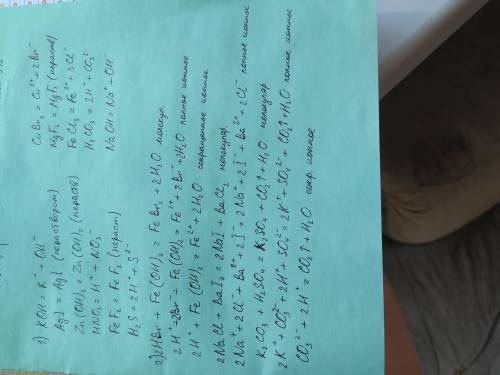 1) KOH = K⁺ + OH⁻
AgI = AgI (нерастворим)
Zn(OH)₂ = Zn(OH)₂ (нераств)
HNO₃ = H⁺ + NO₃⁻
FeF₂ = FeF₂ (нераст)
H₂S = 2H⁺ + S²⁻
CuBr₂ = Cu²⁺ + 2Br⁻
MgF₂ = MgF₂ (нераств)
FeCl₃ = Fe³⁺ + 3Cl⁻
H₂CO₃ = 2H⁺ + CO₃²⁻
NaOH = Na⁺ + OH⁻
2) 2HBr + Fe(OH)₂ = FeBr₂ + 2H₂O молекул.
2H⁺ + 2Br⁻ + Fe(OH)₂ = Fe²⁺ + 2Br⁻ + 2H₂O полное ионное
2H⁺ + Fe(OH)₂ = Fe²⁺ + 2H₂O сокращенное ионное
2NaCl + BaI₂ = 2NaI + BaCl₂ молекуляр.
2Na⁺ + 2Cl⁻ + Ba²⁺ + 2I⁻ = 2Na⁺ + 2I⁻ + Ba²⁺ + 2Cl⁻ полное ионное
K₂CO₃ + H₂SO₄ = K₂SO₄ + CO₂↑ + H₂O молекуляр.
2K⁺ + CO₃²⁻ + 2H⁺ + SO₄²⁻ = 2K⁺ + SO₄²⁻ + CO₂↑ + H₂O полное ионное
CO₃²⁻ + 2H⁺ = CO₂↑ + H₂O сокр. ионное